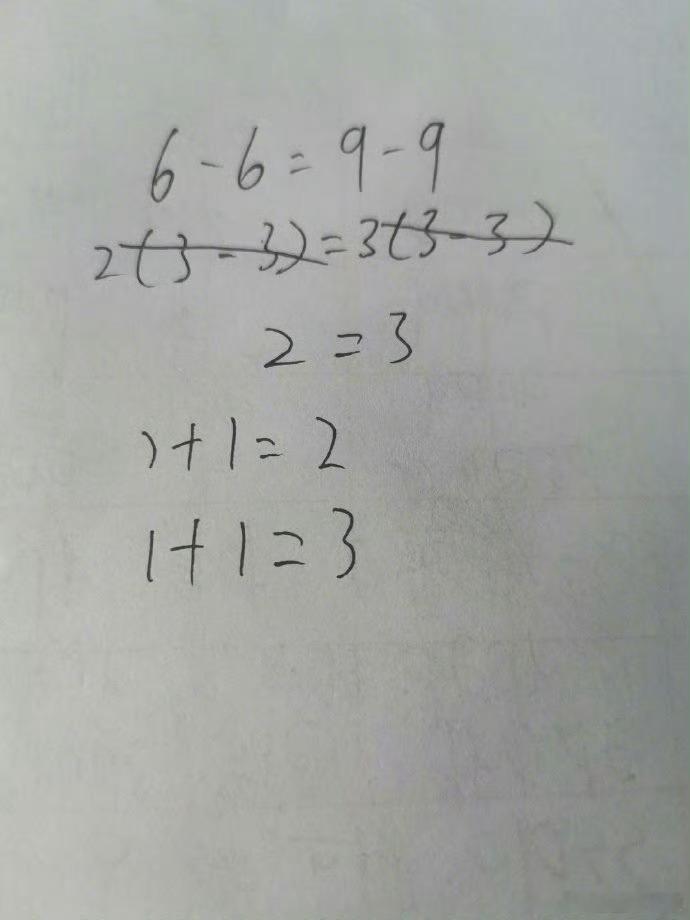 6-6=9-9
2(3-3)=3(3-3)
2=3
1+1=2
1+1=3